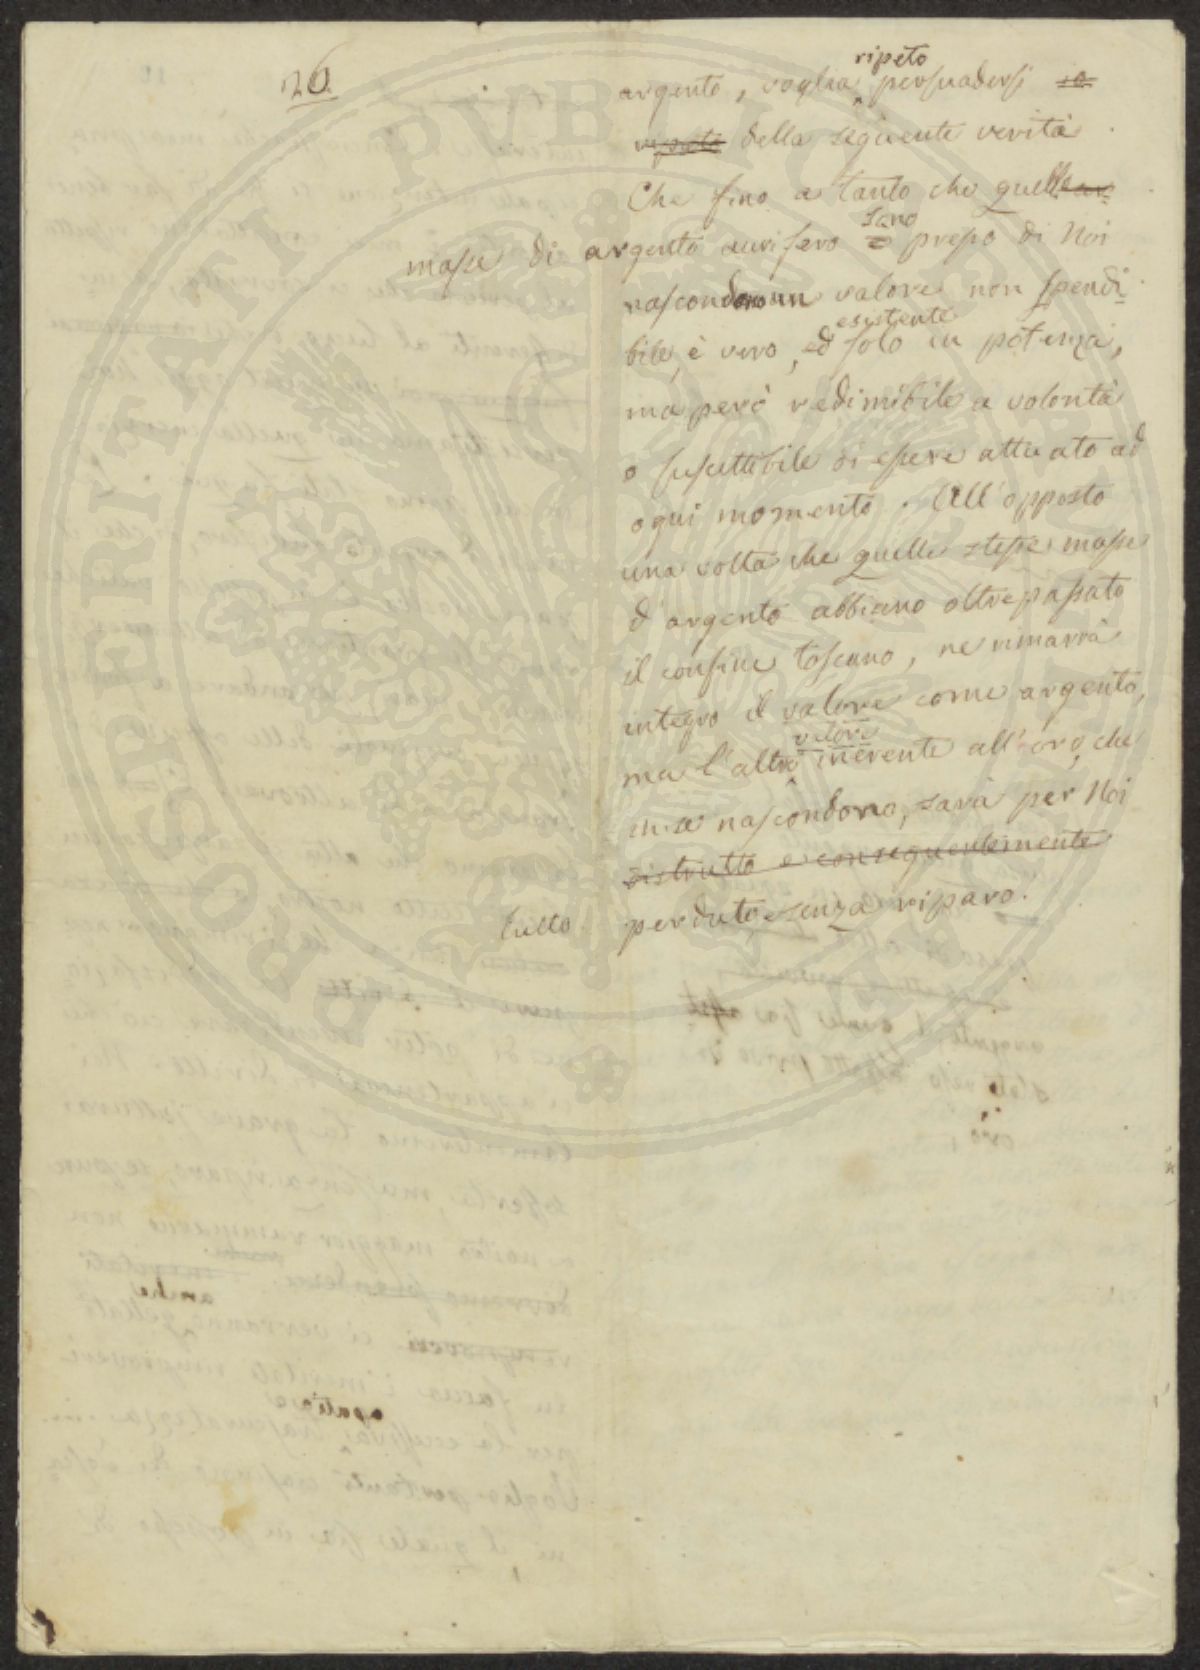 26
ripeto
argento, voglia persuadersi io
ripeto della seguente verità
Che fino a tanto che quelle
sono
masse di argento aurifero e presso di Noi
nascondono un valore non spendi-
esistente
bile, è vero, ed solo in potenza,
ma però redimibile a volontà
o suscettibile di essere attuato ad
ogni momento. All'opposto
una volta che quelle stesse masse
d'argento abbiano oltrepassato
il confine toscano, ne rimarrà
integro il valore come argento,
valore
ma l'altro inerente all'oro, che
nascondono, sarà per Noi
distrutto e conseguentemente
tutto perduto e senza riparo.
PROSPERITATI PVBLICAE